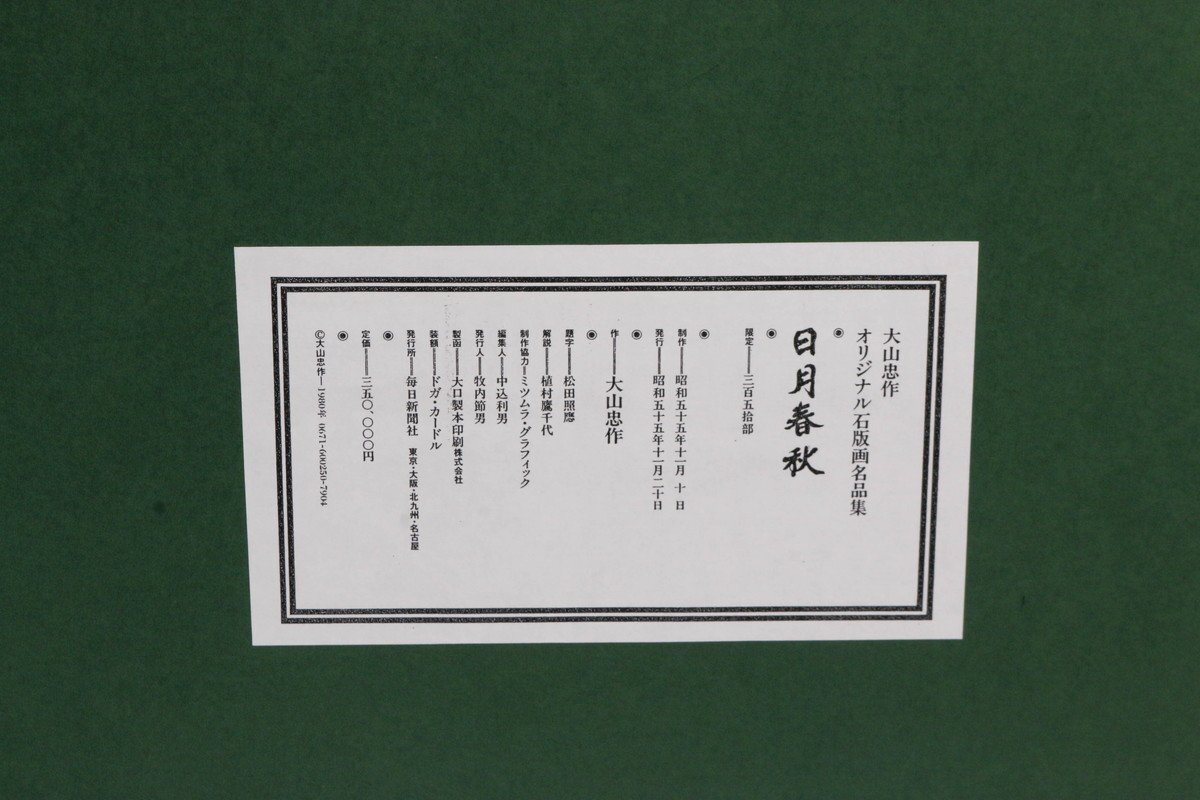 大山忠作
オリジナル石版画名品集
◉
日月春秋
◉
限定━━三百五拾部
◉
制作━━昭和五十五年十一月 十 日
発行━━昭和五十五年十一月二十日
◉
作━━大山忠作
◉
題字━━松田照應
解説━━植村鷹千代
制作協力━ミツムラ・グラフィック
編集人━━中込利男
発行人━━牧内節男
製函━━大口製本印刷株式会社
装額━━ドガ・カードル
発行所━━毎日新聞社 東京・大阪・北九州・名古屋
◉
定価━━三五〇、〇〇〇円
◉
©大山忠作━1980年 0671-600250-7904